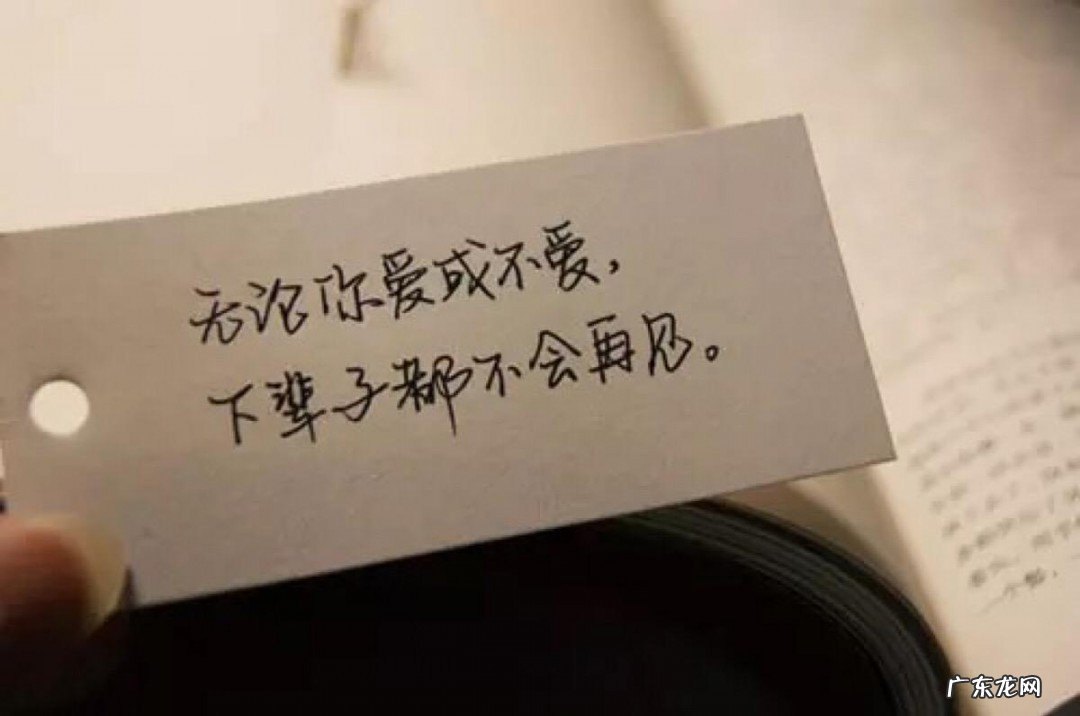 无论你爱或不爱，
下辈子都不会再见。
广东龙网